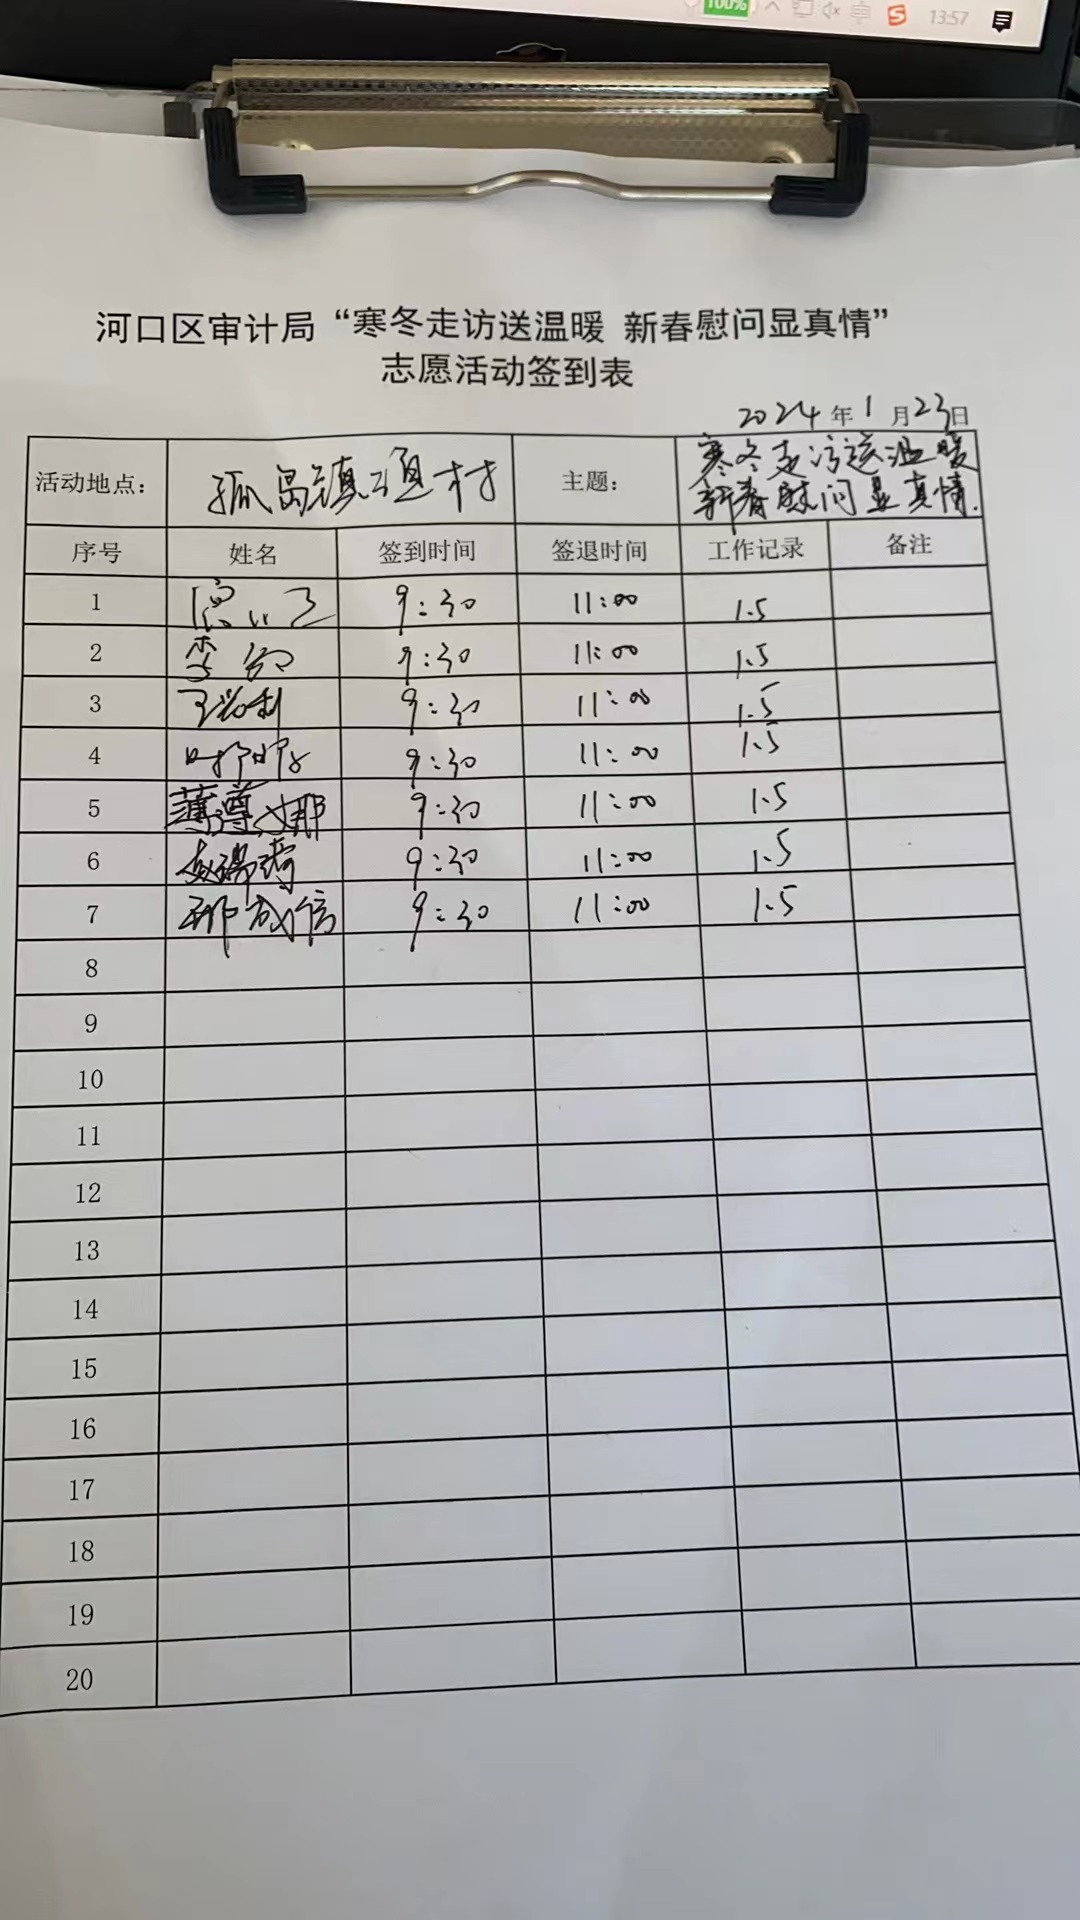 100%
中
13:57
河口区审计局“寒冬走访送温暖 新春慰问显真情”
志愿活动签到表
2024年1月23日
活动地点： 孤岛镇 村 主题： 寒冬走访送温暖
新春慰问显真情.
序号 姓名 签到时间 签退时间 工作记录 备注
1 9:30 11:00 1.5
2 李 9:30 11:00 1.5
3 9:30 11:00 1.5
4 9:30 11:00 1.5
5 薄遵娜 9:30 11:00 1.5
6 赵瑞琦 9:30 11:00 1.5
7 邢成信 9:30 11:00 1.5
8
9
10
11
12
13
14
15
16
17
18
19
20